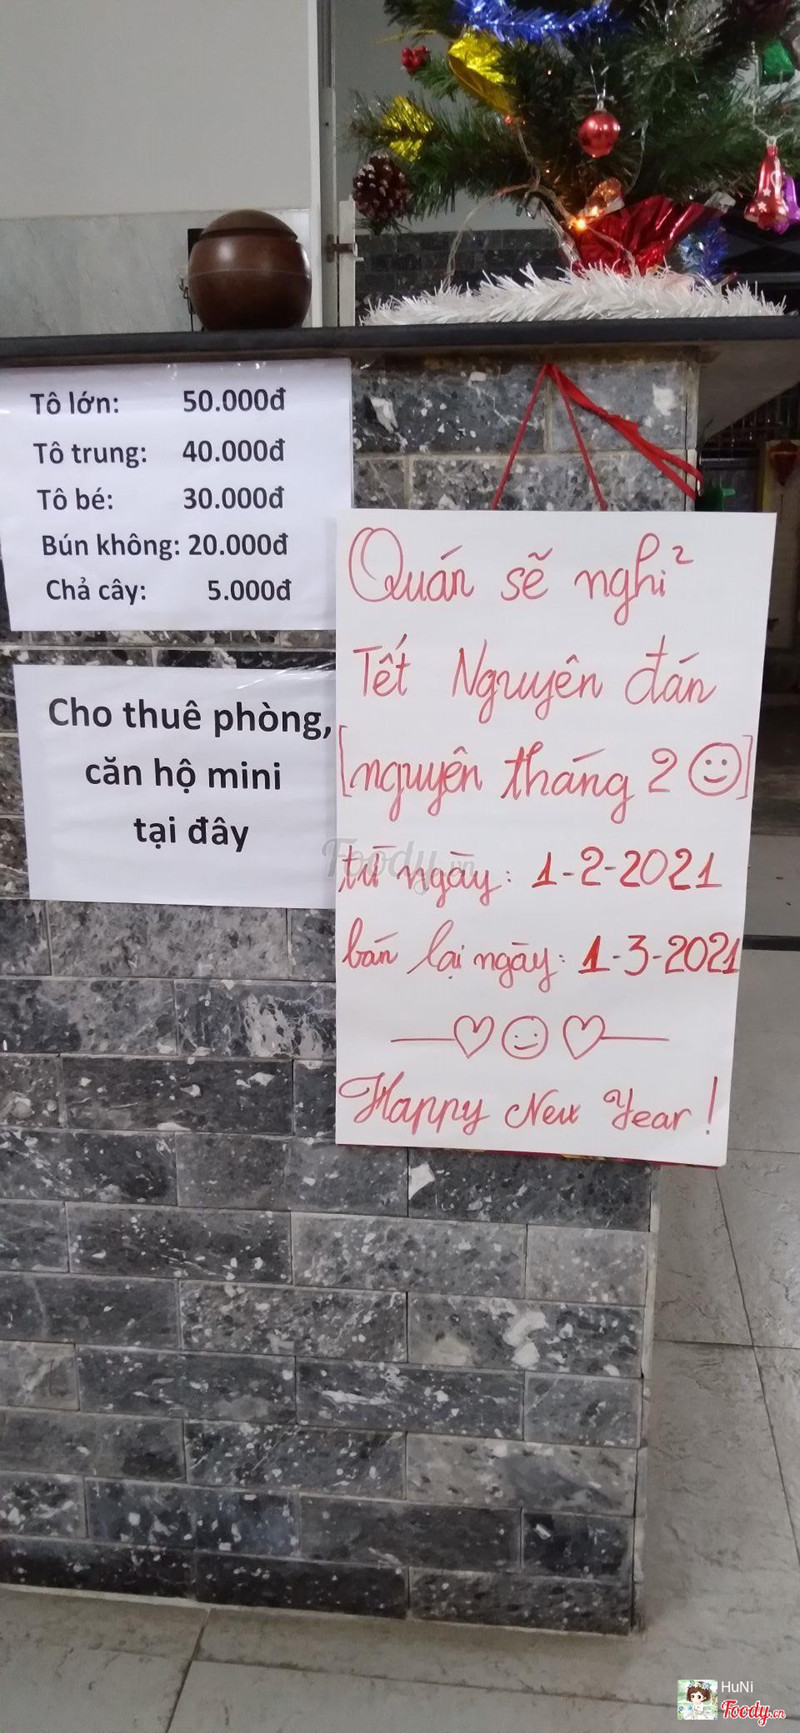 Tô lớn: 50.000đ
Tô trung: 40.000đ
Tô bé: 30.000đ
Bún không: 20.000đ
Chả cây: 5.000đ
Cho thuê phòng,
căn hộ mini
tại đây
Quán sẽ nghỉ
Tết Nguyên đán
[nguyên tháng 2 ☺]
từ ngày: 1-2-2021
bán lại ngày: 1-3-2021
Happy New Year!
Foody.vn
HuNi
Foody.vn